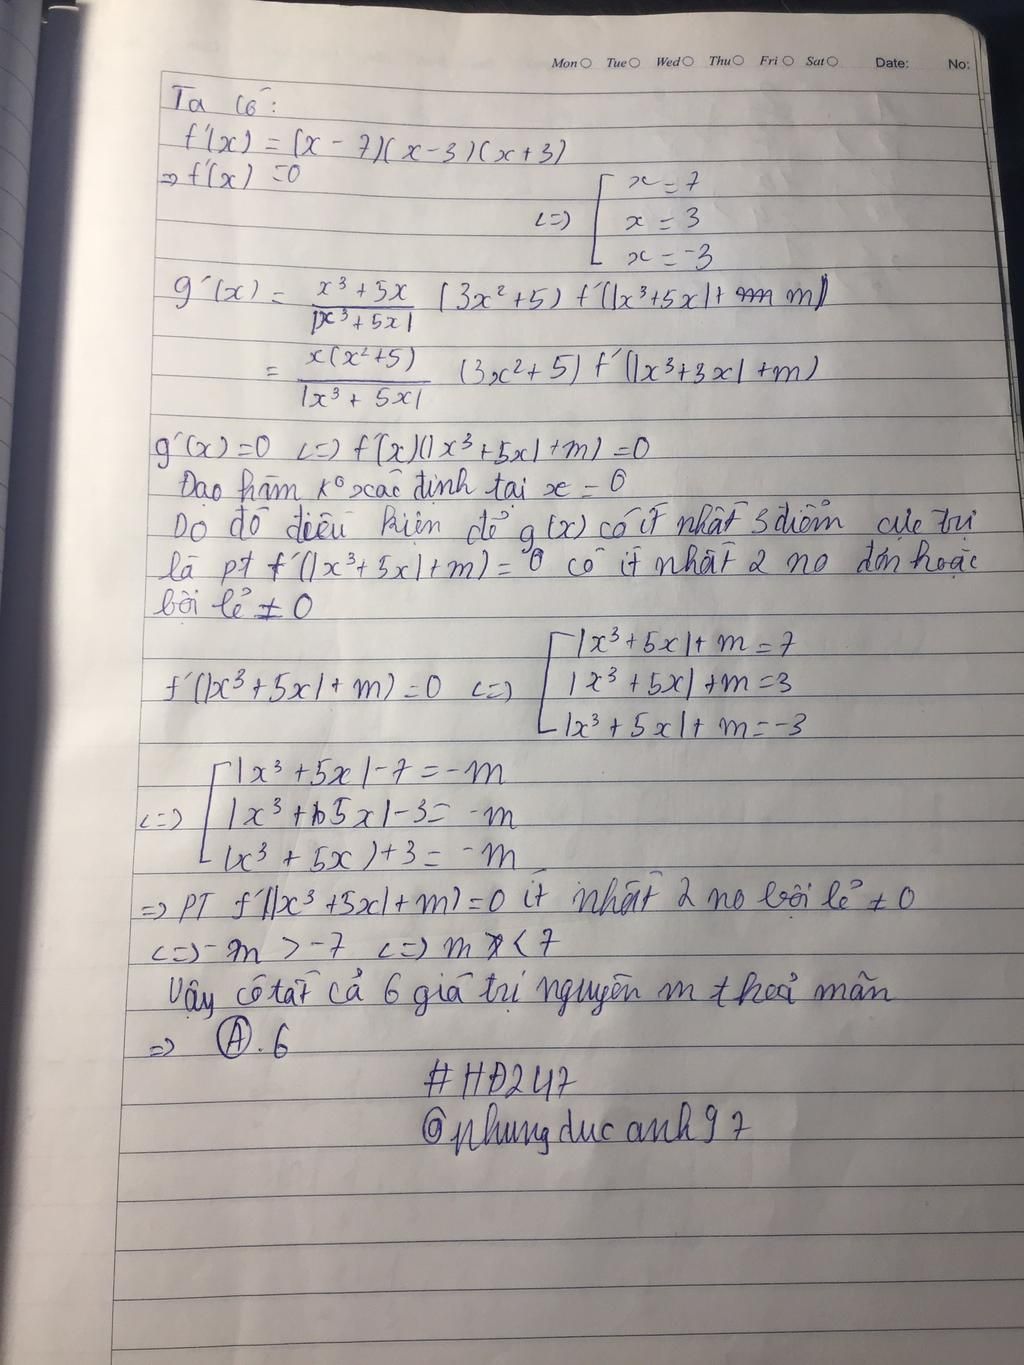 Mon Tue Wed Thu Fri Sat Date: No:
Ta có:
f'(x) = (x - 7)(x - 3)(x + 3)
=> f'(x) = 0
x = 7
<=> x = 3
x = -3
g'(x) = x³ + 5x / |x³ + 5x| (3x² + 5) f'(|x³ + 5x| + m)
= x(x² + 5) / |x³ + 5x| (3x² + 5) f'(|x³ + 3x| + m)
g'(x) = 0 <=> f'(x)(|x³ + 5x| + m) = 0
Đạo hàm k° xác định tại x = 0
Do đó điều kiện để g(x) có ít nhất 3 điểm cực trị
là pt f'(|x³ + 5x| + m) = 0 có ít nhất 2 no đơn hoặc
bội lẻ ≠ 0
|x³ + 5x| + m = 7
f'(|x³ + 5x| + m) = 0 <=> |x³ + 5x| + m = 3
|x³ + 5x| + m = -3
|x³ + 5x| - 7 = -m
<=> |x³ + 5x| - 3 = -m
|x³ + 5x) + 3 = -m
=> PT f'(|x³ + 5x| + m) = 0 ít nhất 2 no bội lẻ ≠ 0
<=> -m > -7 <=> m < 7
Vậy có tất cả 6 giá trị nguyên m thoả mãn
=> A. 6
#HĐ247
@phungducanh97